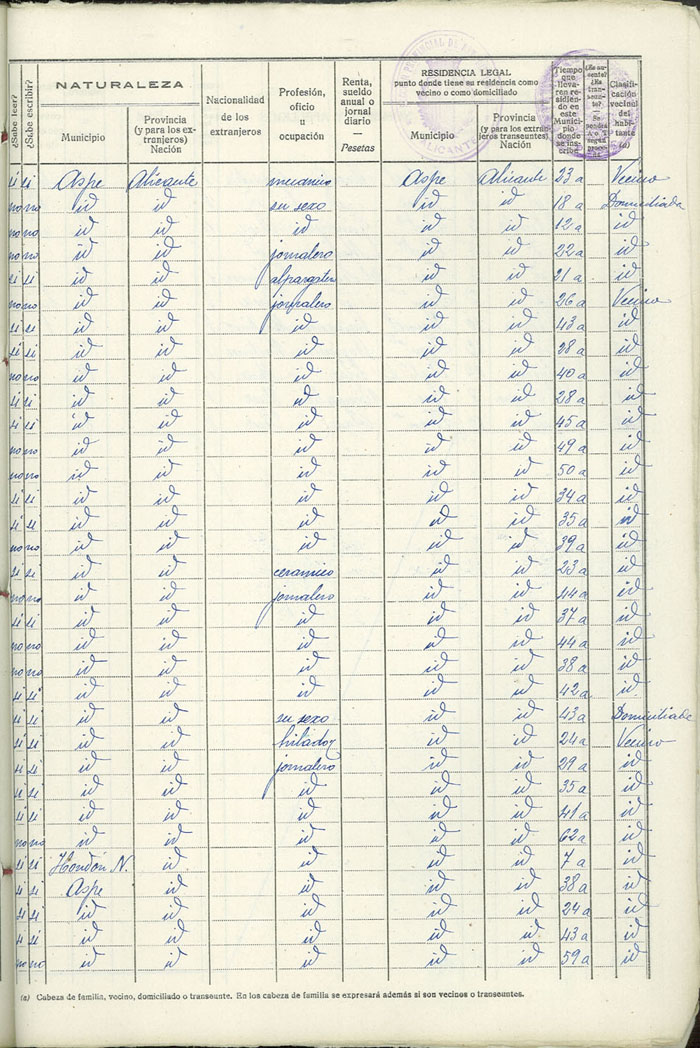 ¿Sabe leer?
¿Sabe escribir?
NATURALEZA
Municipio
Provincia (y para los extranjeros) Nación
Nacionalidad de los extranjeros
Profesión, oficio u ocupación
Renta, sueldo anual o jornal diario — Pesetas
RESIDENCIA LEGAL
punto donde tiene su residencia como vecino o como domiciliado
Municipio
Provincia (y para los extranjeros transeuntes) Nación
Tiempo que llevaren residiendo en este Municipio donde se inscribe
Clasificación vecinal del habitante (a)
ALICANTE
si si Aspe Alicante mecanico Aspe Alicante 23 a Vecino
no no id id su sexo id id 18 a Domiciliada
no no id id id id id 12 a id
no no id id jornalero id id 22 a id
si si id id alpargatero id id 21 a id
no no id id jornalero id id 26 a Vecino
si si id id id id id 43 a id
si si id id id id id 28 a id
no no id id id id id 40 a id
si si id id id id id 28 a id
si si id id id id id 45 a id
no no id id id id id 49 a id
no no id id id id id 50 a id
si si id id id id id 34 a id
si si id id id id id 35 a id
no no id id id id id 39 a id
si si id id ceramico id id 23 a id
no no id id jornalero id id 44 a id
si si id id id id id 37 a id
no no id id id id id 44 a id
no no id id id id id 38 a id
si si id id id id id 42 a id
si si id id su sexo id id 43 a Domiciliada
si si id id hilador id id 24 a Vecino
si si id id jornalero id id 29 a id
si si id id id id id 35 a id
si si id id id id id 41 a id
no no id id id id id 62 a id
si si Hondón N. id id id id 7 a id
si si Aspe id id id id 38 a id
si si id id id id id 24 a id
si si id id id id id 43 a id
no no id id id id id 59 a id
(a) Cabeza de familia, vocino, domiciliado o transeunte. En los cabeza de familia se expresará además si son vecinos o transeuntes.